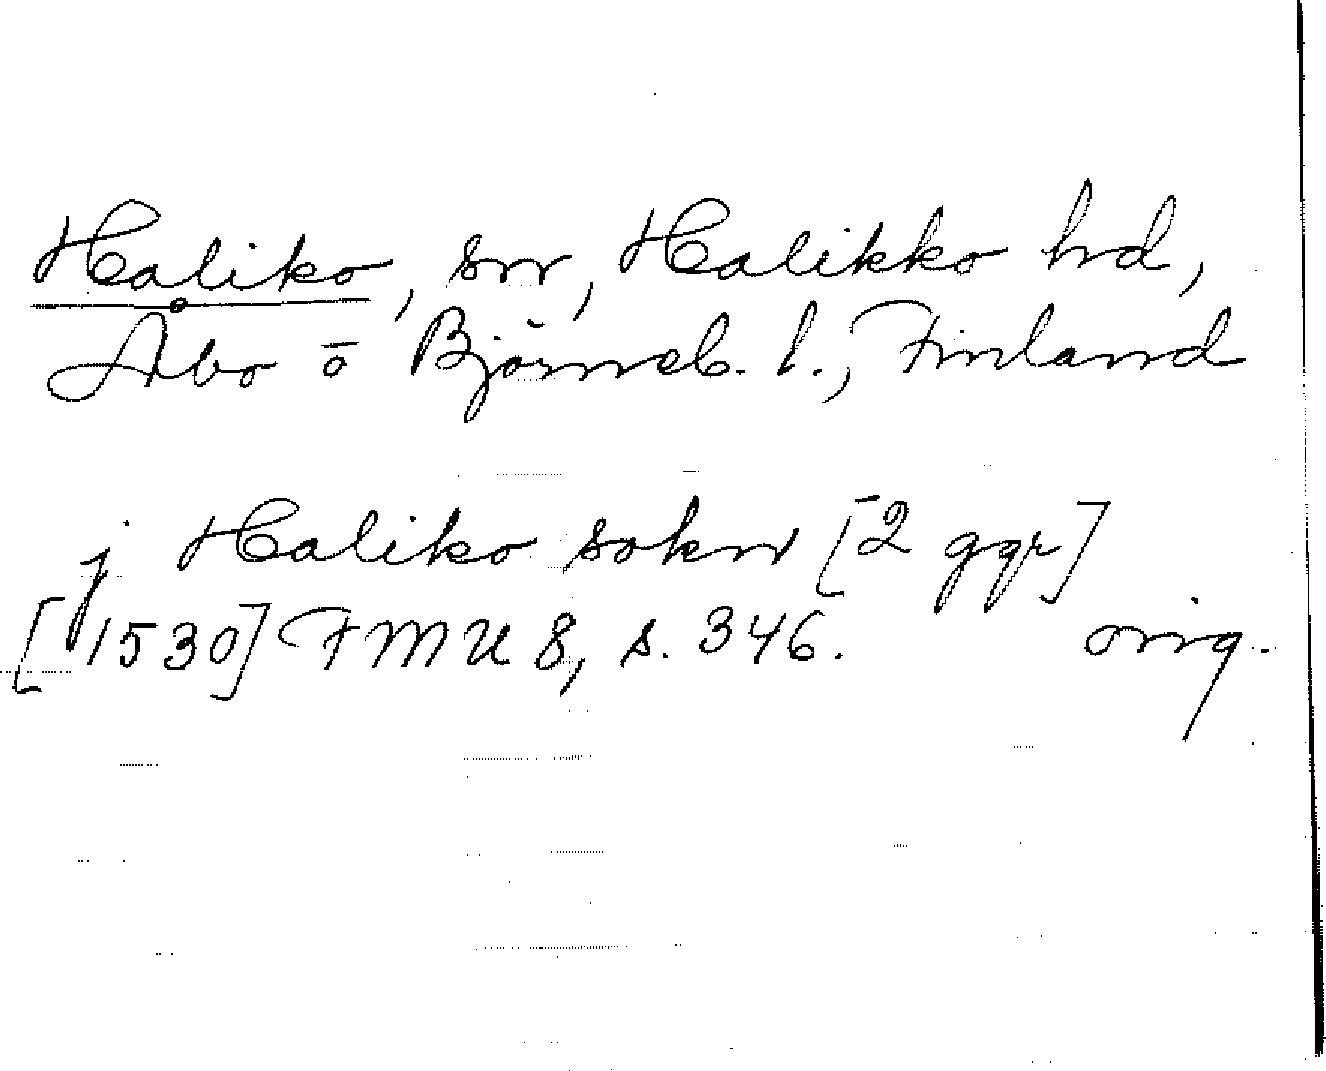 Haliko, sn, Halikko hd,
Åbo o Björneb. l., Finland
j Haliko sokn [2 ggr]
[1530] FMU 8, s. 346. orig.